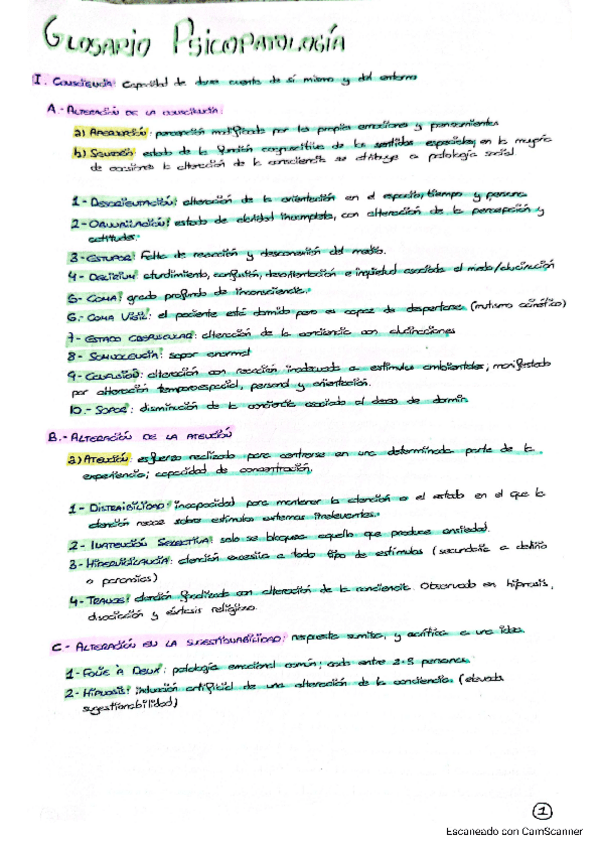 GLOSARIO PSICOPATOLOGÍA
I. CONSCIENCIA: Capacidad de darse cuenta de sí mismo y del entorno
A.- ALTERACIÓN DE LA CONSCIENCIA:
a) APERCEPCIÓN: percepción modificada por las propias emociones y pensamientos
b) SENSORIO: estado de la función cognoscitiva de los sentidos especiales, en la mayoría
de ocasiones la alteración de la consciencia se atribuye a patología social.
1- DESORIENTACIÓN: alteración de la orientación en el espacio, tiempo y persona
2- OBNUBILACIÓN: estado de claridad incompleta, con alteración de la percepción y
actitudes.
3- ESTUPOR: Falta de reacción y desconexión del medio.
4- DELIRIUM: aturdimiento, confusión, desorientación e inquietud asociada al miedo/alucinación
5- COMA: grado profundo de inconsciencia.
6.- COMA VIGIL: el paciente está dormido pero es capaz de despertarse (mutismo acinético)
7- ESTADO CREPUSCULAR: alteración de la conciencia con alucinaciones
8- SOMNOLENCIA: sopor anormal
9- CONFUSIÓN: alteración con reacción inadecuada a estímulos ambientales, manifestado
por alteración temporoespacial, personal y orientación.
10.- SOPOR: disminución de la conciencia asociada al deseo de dormir.
B.- ALTERACIÓN DE LA ATENCIÓN
a) ATENCIÓN: esfuerzo realizado para centrarse en una determinada parte de la
experiencia; capacidad de concentración.
1- DISTRAIBILIDAD: incapacidad para mantener la atención o el estado en el que la
atención recae sobre estímulos externos irrelevantes.
2- INATENCIÓN SELECTIVA: solo se bloquea aquello que produce ansiedad.
3- HIPERVIGILANCIA: atención excesiva a todo tipo de estímulos (secundaria a delirio
o paranoias)
4- TRANCE: atención focalizada con alteración de la conciencia. Observado en hipnosis,
disociación y éxtasis religioso.
C - ALTERACIÓN EN LA SUGESTIONABILIDAD: respuesta sumisa, y acrítica a una idea.
1- FOLIE À DEUX: patología emocional común; cada entre 2-3 personas
2- HIPNOSIS: inducción artificial de una alteración de la conciencia. (elevada
sugestionabilidad)
1
Escaneado con CamScanner